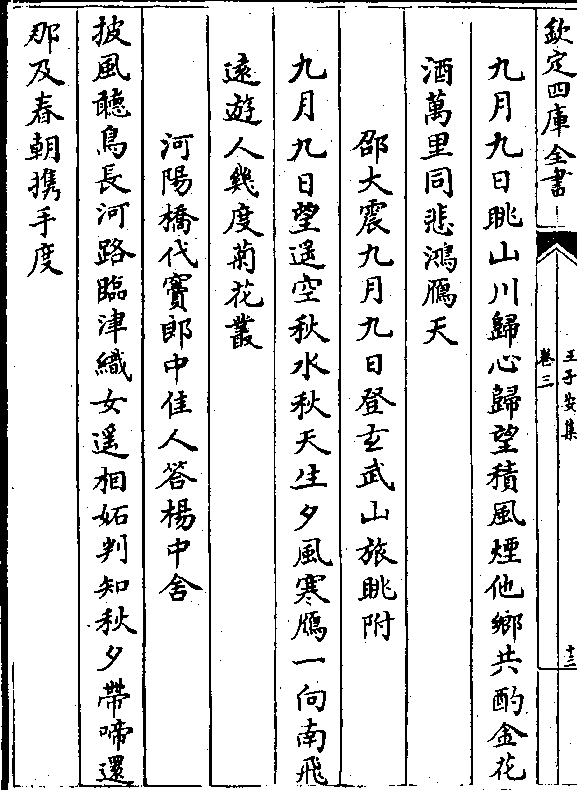 欽定四庫全書
王子安集
卷三
十三
九月九日眺山川歸心歸望積風煙他鄉共酌金花
酒萬里同悲鴻鴈天
邵大震九月九日登玄武山旅眺附
九月九日望遥空秋水秋天生夕風寒鴈一向南飛
逺遊人幾度菊花叢
河陽橋代竇郎中佳人答楊中舍
披風聽鳥長河路臨津織女遥相妬判知秋夕帶啼還
那及春朝攜手度